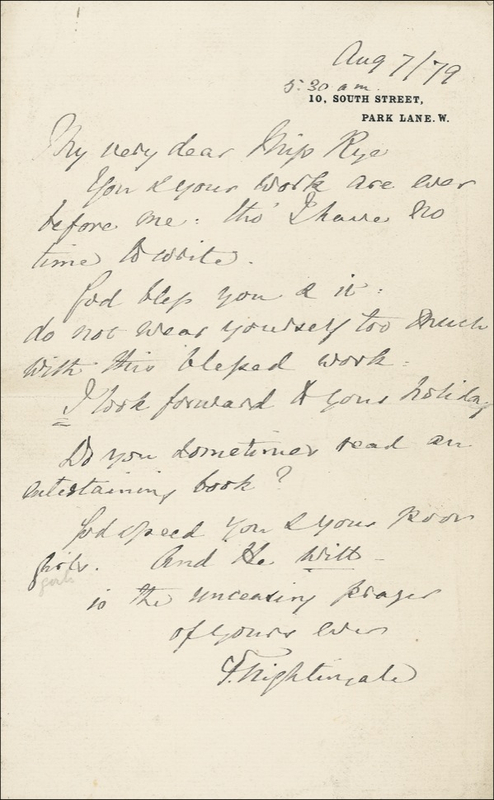 Aug 7/79
5.30 a.m.
10, SOUTH STREET,
PARK LANE. W.
My very dear Miss Rye
You & your work are ever
before me: tho' I have no
time to write.
God bless you & it:
do not wear yourself too much
with this blessed work:
I look forward to your holiday
Do you sometimes read an
entertaining book?
God speed you & your poor
girls. And He will -
girls
is the unceasing prayer
of yours ever
F. Nightingale